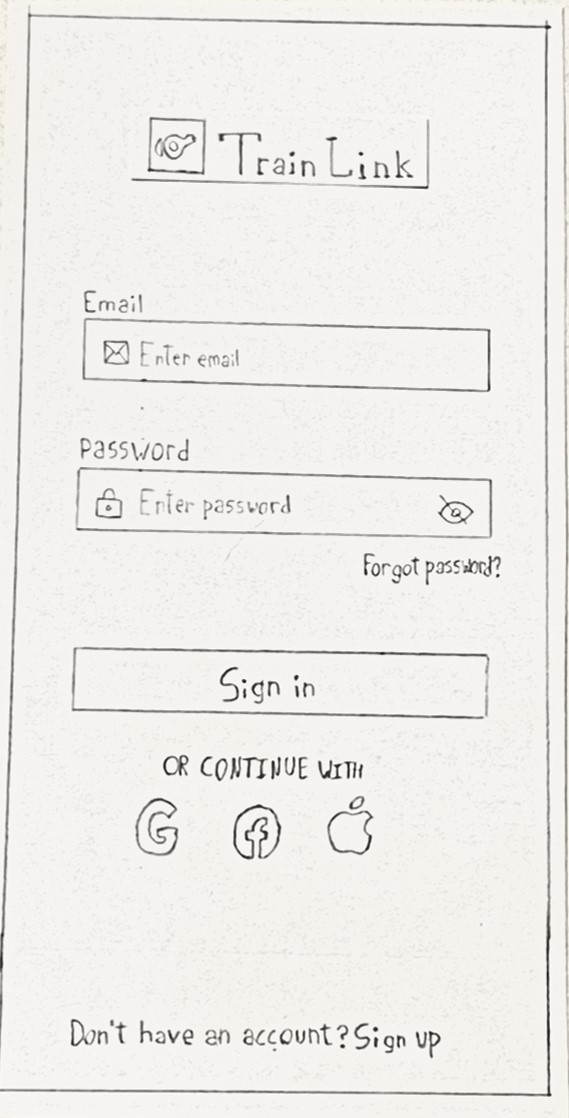 Train Link
Email
Enter email
Password
Enter password
Forgot password?
Sign in
OR CONTINUE WITH
G f
Don't have an account? Sign up